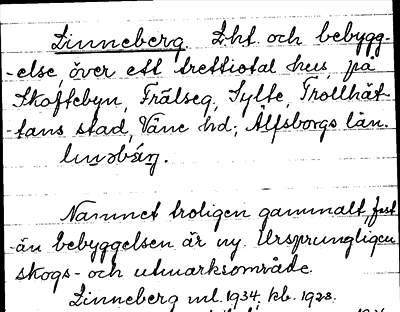 Linneberg. Lht och bebygg-
-else, över ett trettiotal hus, på
Skoftebyn, Frälseg, Sylte, Trollhät-
-tans stad, Väne hd; Älfsborgs län.
Namnet troligen gammalt, fast-
-än bebyggelsen är ny. Ursprungligen
skogs- och utmarksområde.
Linneberg ml. 1934, kb. 1928.